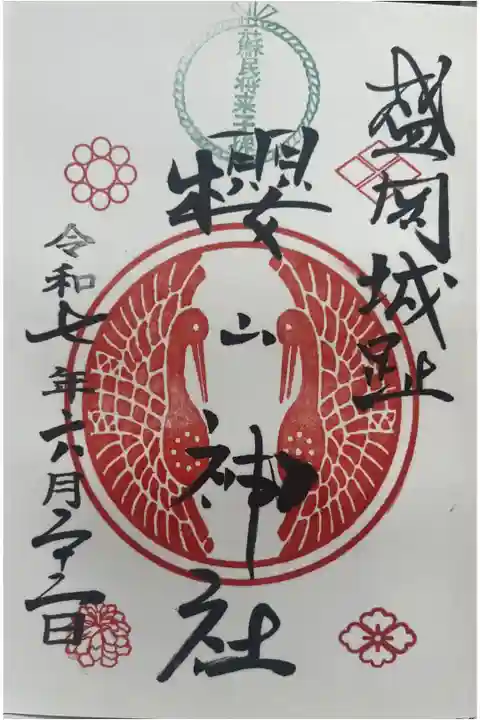 盛岡城趾
蘇民将来子孫
櫻山神社
令和七年六月二十二日